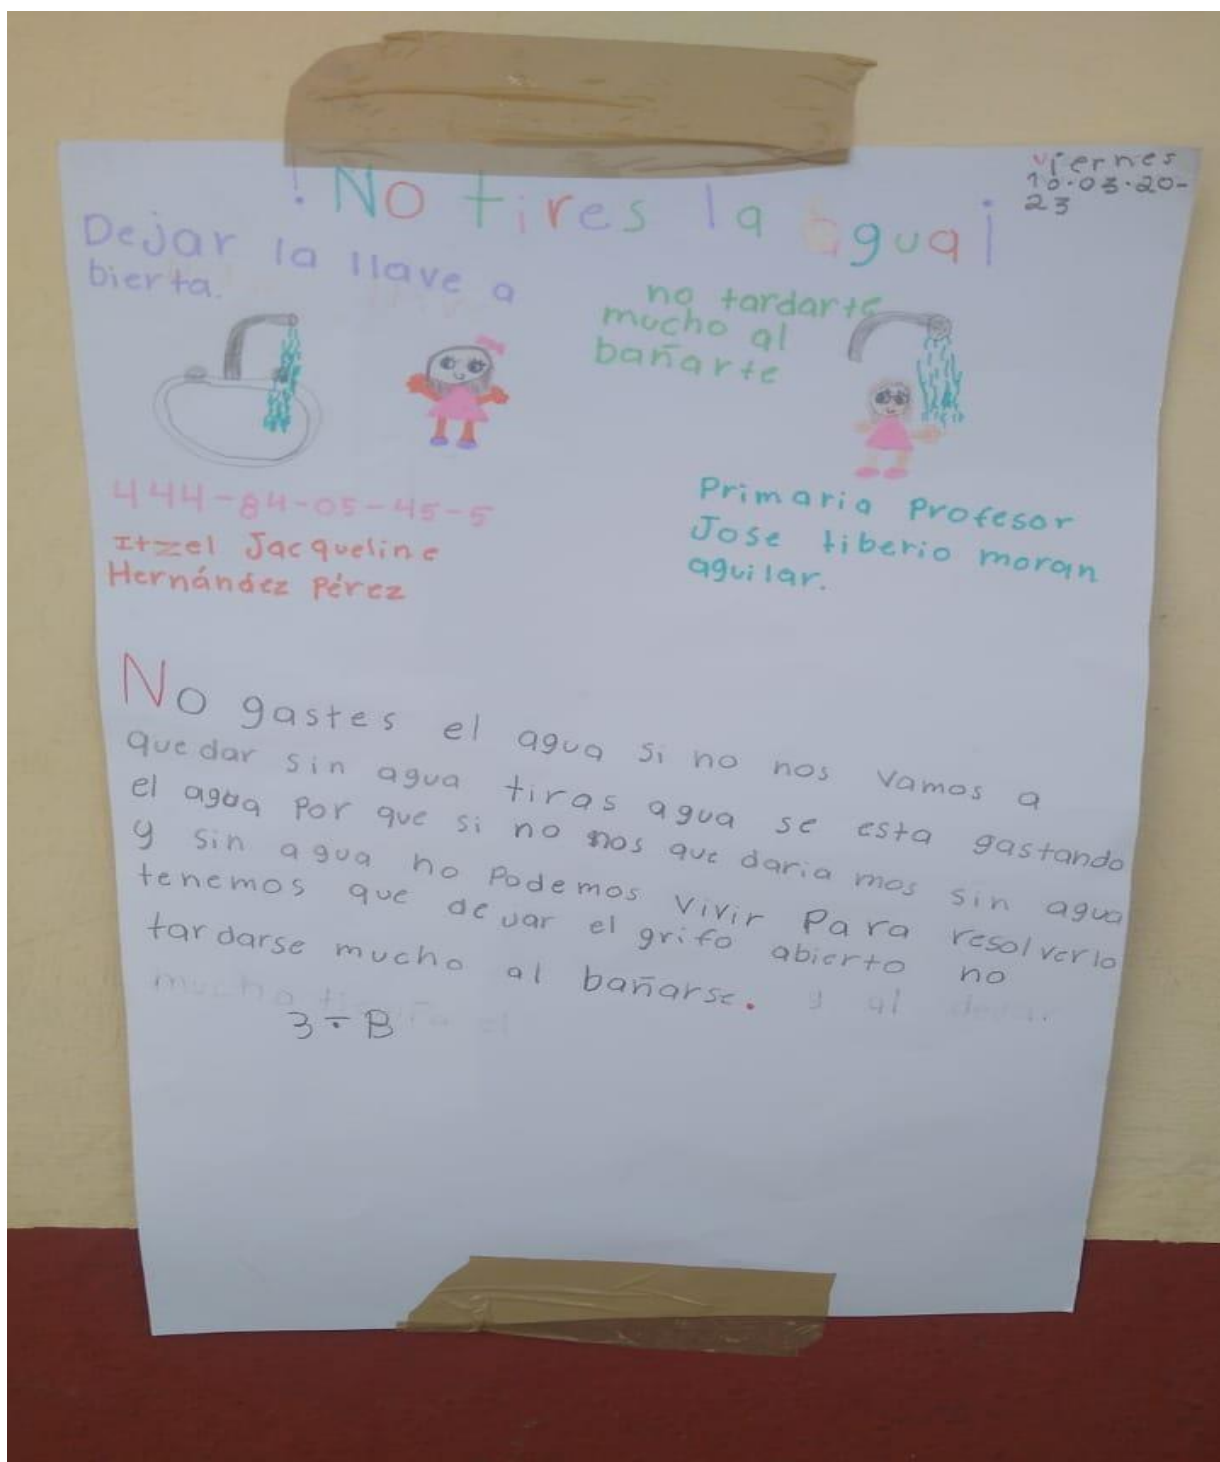 viernes
10.03.20-
23
!No tires la agua¡
Dejar la llave a
bierta.
no tardarte
mucho al
bañarte
444-84-05-45-5
Itzel Jacqueline
Hernández Pérez
Primaria Profesor
Jose tiberio moran
aguilar.
No gastes el agua si no nos vamos a
quedar sin agua tiras agua se esta gastando
el agua Por que si no nos que daria mos sin agua
y sin agua no Podemos vivir Para resolverlo
tenemos que dejar el grifo abierto no
tardarse mucho al bañarse. y al dejar
mucho
3÷B